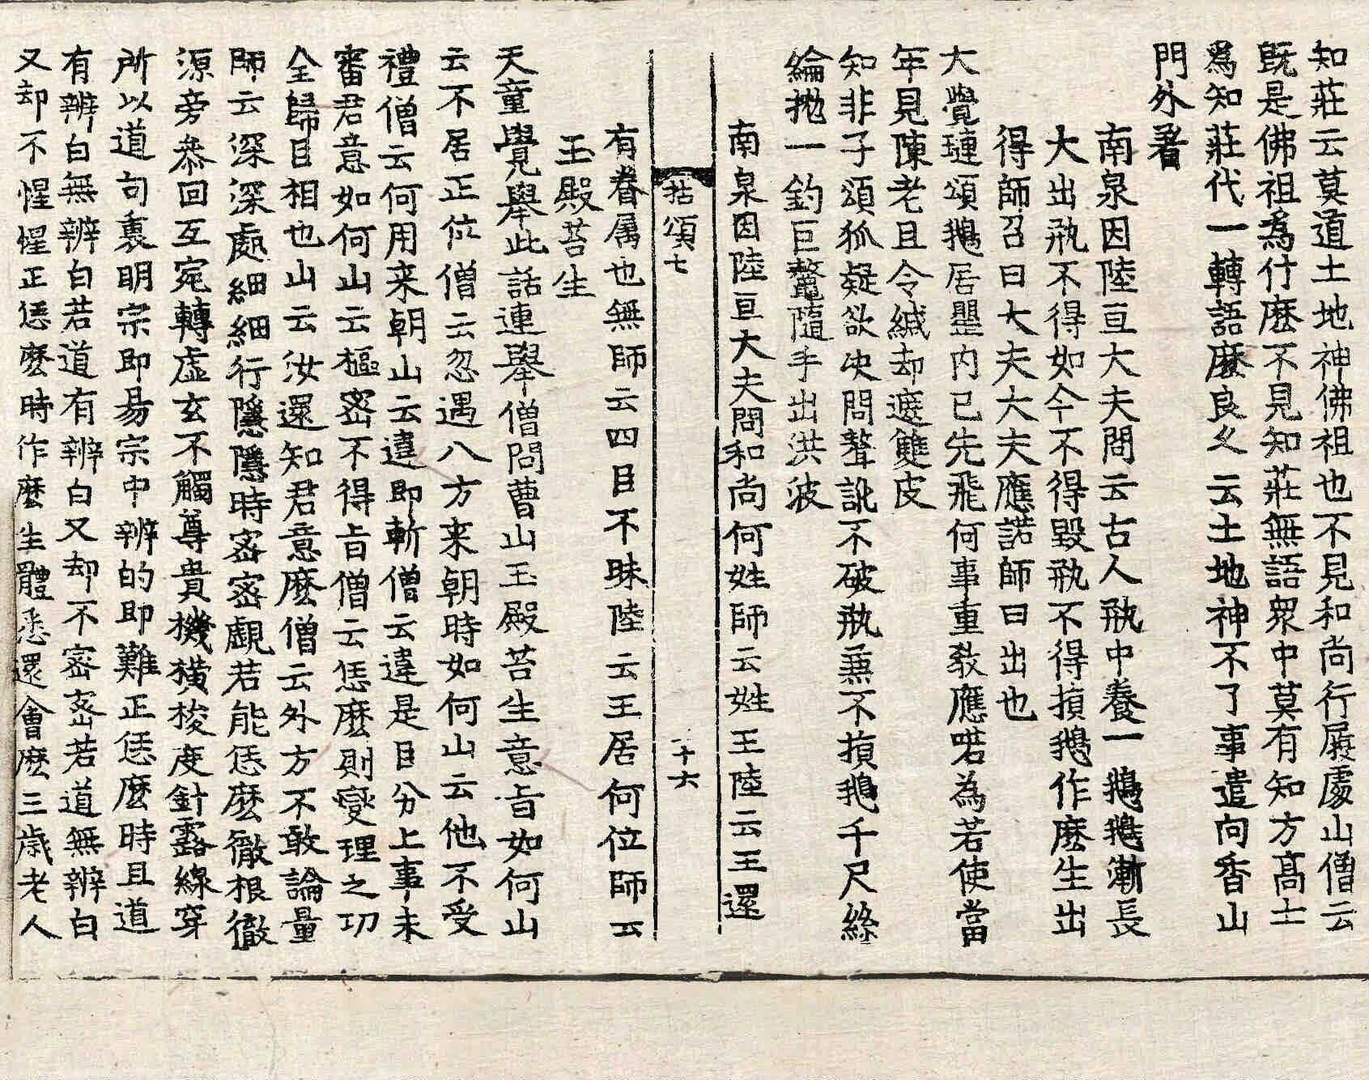 知莊云莫道土地神佛祖也不見和尚行履處山僧云
旣是佛祖爲什麽不見知莊無語衆中莫有知方高士
爲知莊代一轉語麽良久云土地神不了事遣向香山
門外著
南泉因陸亘大夫問云古人甁中養一鵝鵝漸長
大出甁不得如今不得毁甁不得損鵝作麽生出
得師召曰大夫大夫應諾師曰出也
大覺璉頌鵝居甖內已先飛何事重敎應喏為若使當
年見陳老且令緘却遮雙皮
知非子頌狐疑欲決問聱訛不破甁兼不損鵝千尺絲
綸抛一釣巨鼇隨手出洪波
南泉因陸亘大夫問和尚何姓師云姓王陸云王還
拈頌七 二十六
有眷属也無師云四目不昧陸云王居何位師云
玉殿苔生
天童覺舉此話連擧僧問曹山玉殿苔生意旨如何山
云不居正位僧云忽遇八方来朝時如何山云他不受
禮僧云何用来朝山云違即斬僧云違是目分上事未
審君意如何山云樞密不得旨僧云恁麽則燮理之功
全歸目相也山云汝還知君意麽僧云外方不敢論量
師云深深處細細行隱隱時密密覰若能恁麽徹根徹
源旁叅回互宛轉虚玄不觸尊貴機橫梭度針露線穿
所以道句裏明宗即易宗中辨的即難正恁麽時且道
有辨白無辨白若道有辨白又却不密密若道無辨白
又却不惺惺正恁麽時作麽生體悉還會麽三歳老人